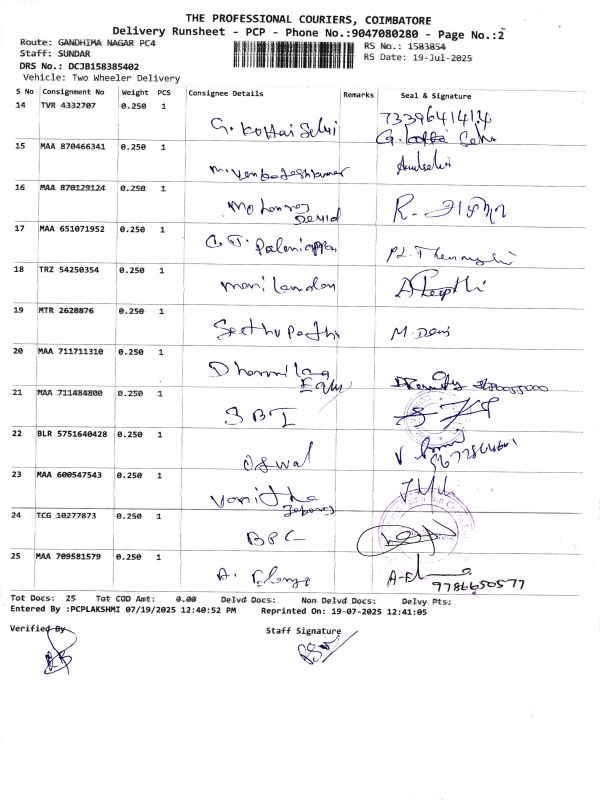 THE PROFESSIONAL COURIERS, COIMBATORE
Delivery Runsheet - PCP - Phone No.:9047080280 - Page No.:2
Route: GANDHIMA NAGAR PC4
RS No.: 1583854
Staff: SUNDAR
RS Date: 19-Jul-2025
DRS No.: DCJB158385402
Vehicle: Two Wheeler Delivery
S No Consignment No Weight PCS Consignee Details Remarks Seal & Signature
14 TVR 4332707 0.250 1 G. Kottai Selvi 7339641414
15 MAA 870466341 0.250 1
16 MAA 870129124 0.250 1 Mohanraj David R.
17 MAA 651071952 0.250 1 C. T. Palaniappan PL.
18 TRZ 54250354 0.250 1 Manilandan
19 MTR 2628876 0.250 1 Sethupathi M.
20 MAA 711711310 0.250 1
21 MAA 711484800 0.250 1 SBI
22 BLR 5751640428 0.250 1 Oswal V
23 MAA 600547543 0.250 1 Vanitha
24 TCG 10277873 0.250 1 BPC
25 MAA 709581579 0.250 1 A. Elango A-El 9786650577
Tot Docs: 25 Tot COD Amt: 0.00 Delvd Docs: Non Delvd Docs: Delvy Pts:
Entered By :PCPLAKSHMI 07/19/2025 12:40:52 PM Reprinted On: 19-07-2025 12:41:05
Verified By Staff Signature